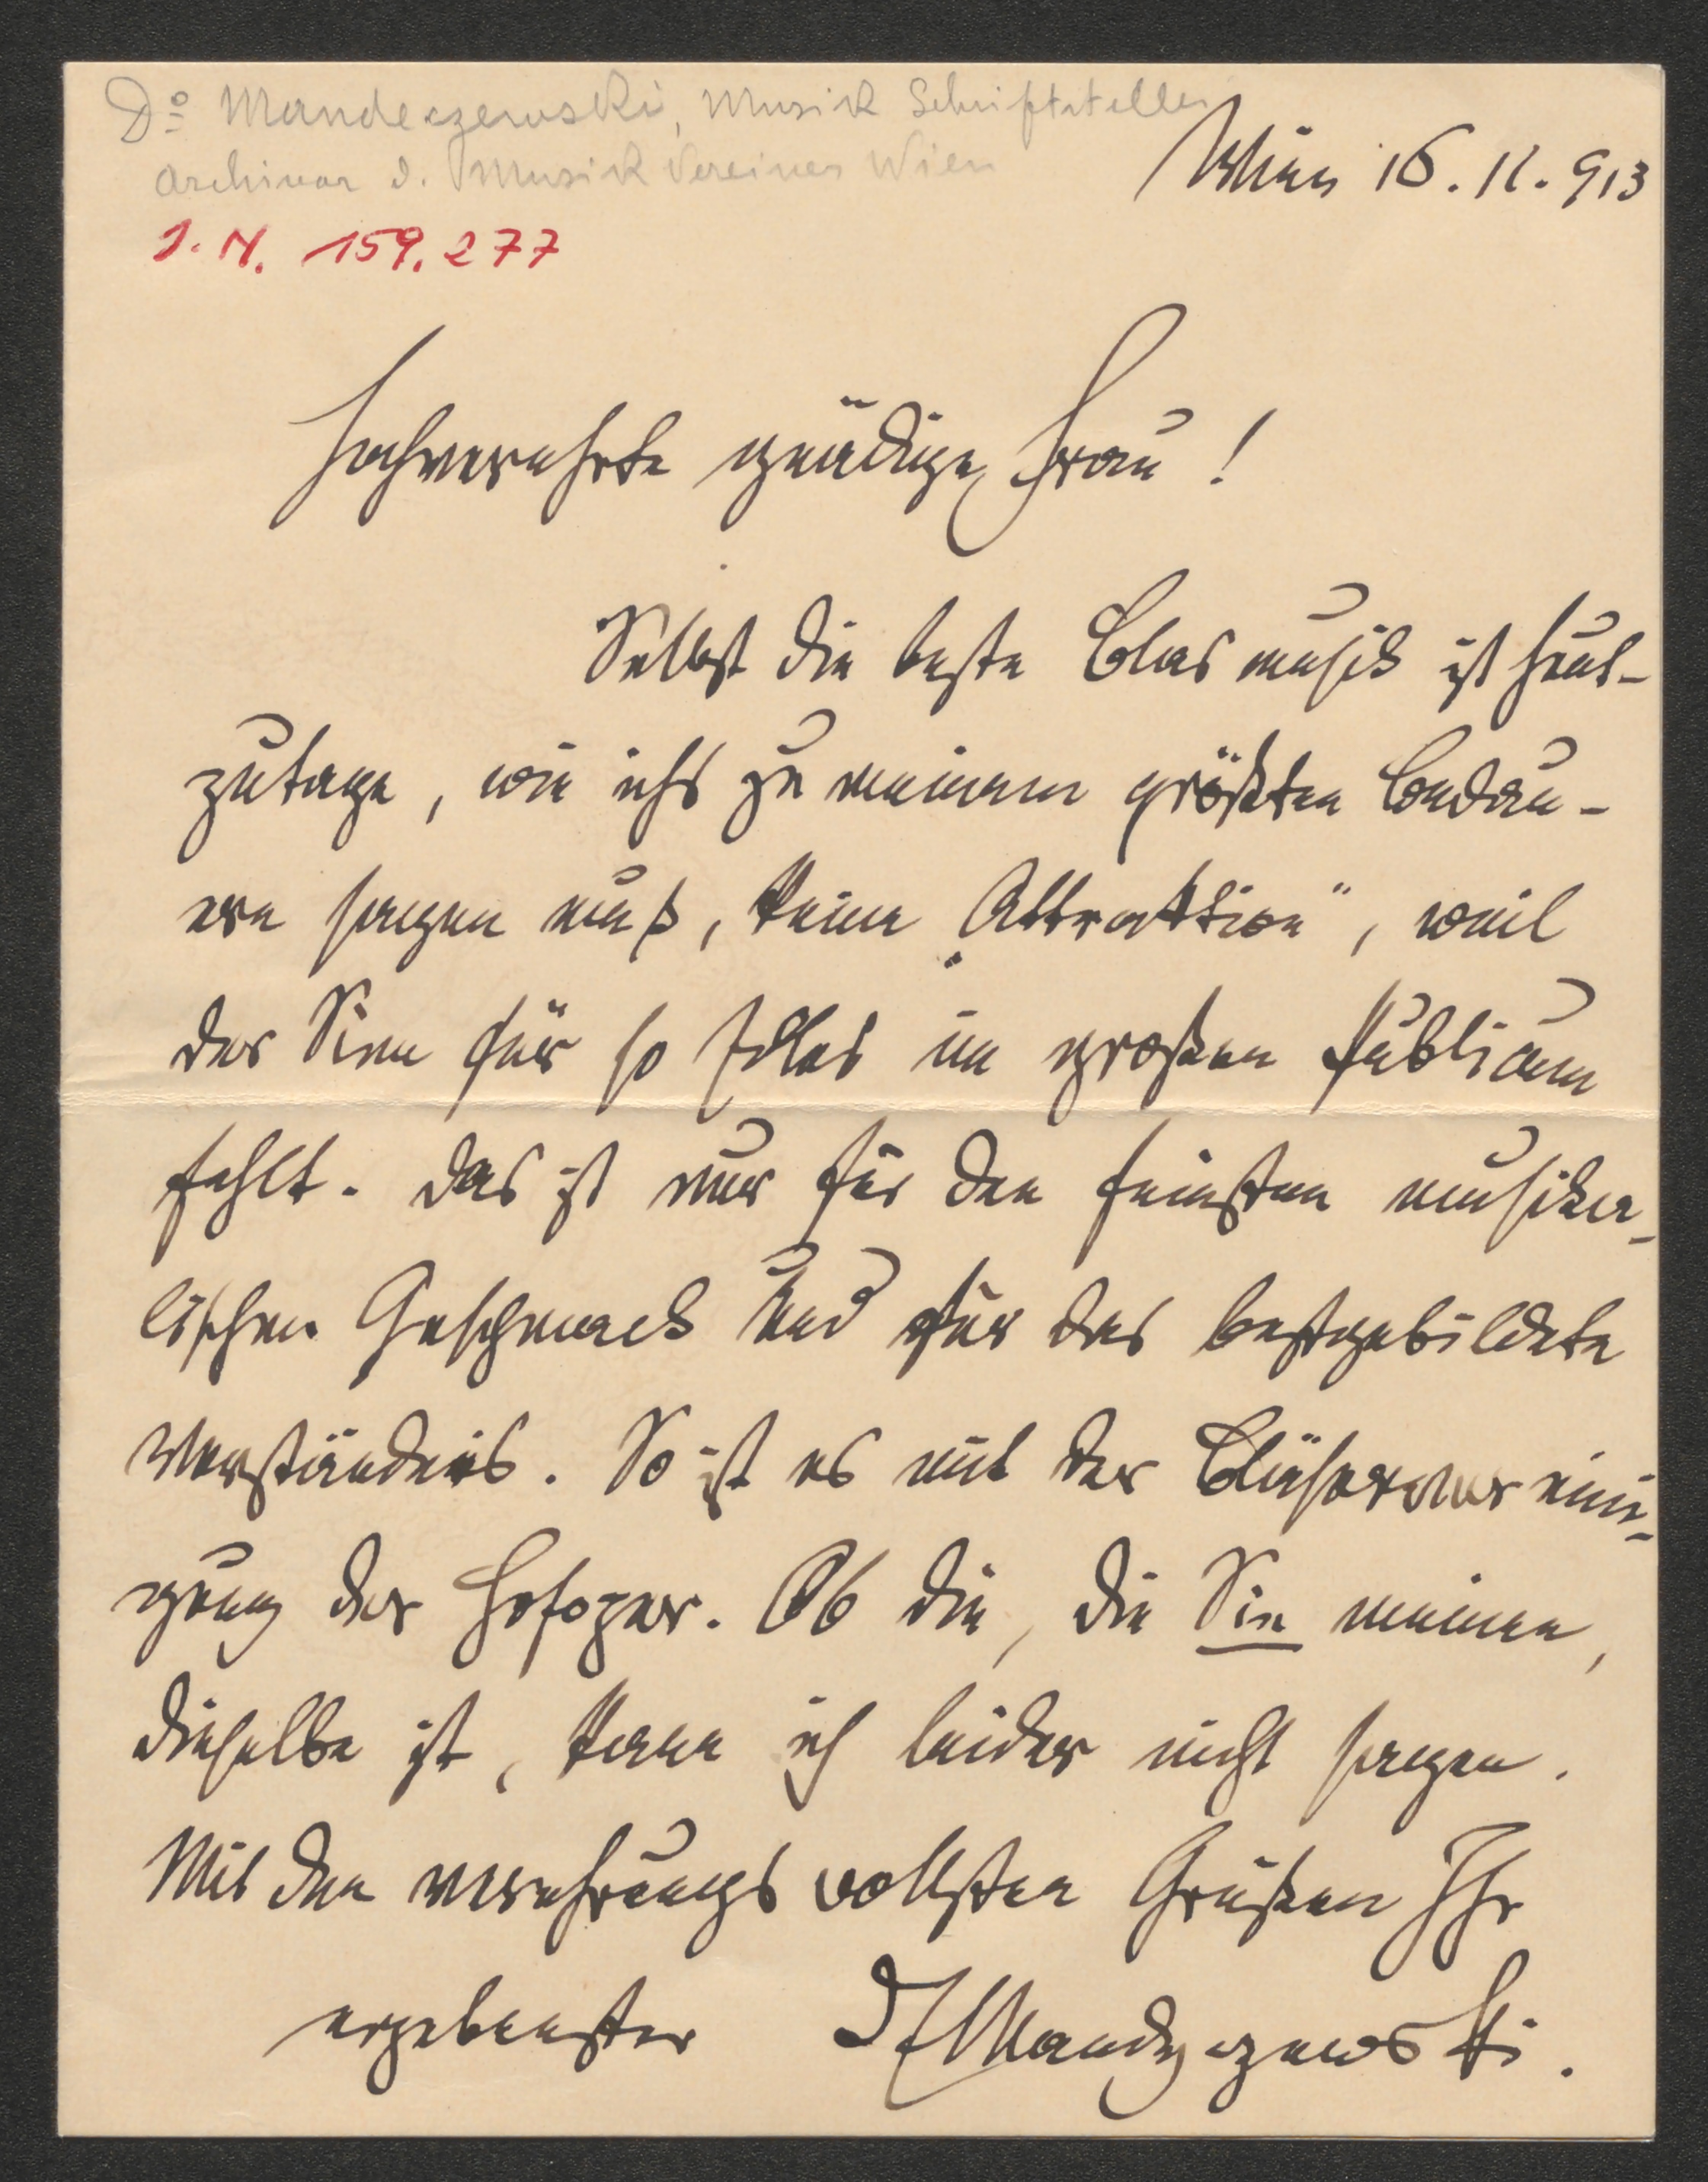 Dr Mandeczewski, Musik Schriftsteller
Archivar d. Musik Vereines Wien
I. N. 159.277
Wien 16. 11. 913
Hochverehrte gnädige Frau!
Selbst die beste Blasmusik ist heut-
zutage, wie ichs zu meinem größten Bedau-
ern sagen muß, keine „Attraktion", weil
der Sinn für so Edles im großen Publicum
fehlt. Das ist nur für den feinsten musika-
lischen Geschmack und für das bestgebildete
Verständnis. So ist es mit der Bläservereini-
gung der Hofoper. Ob die, die Sie meinen,
dieselbe ist, kann ich leider nicht sagen.
Mit den verehrungsvollsten Grüßen Ihr
ergebenster Mandyczewski.